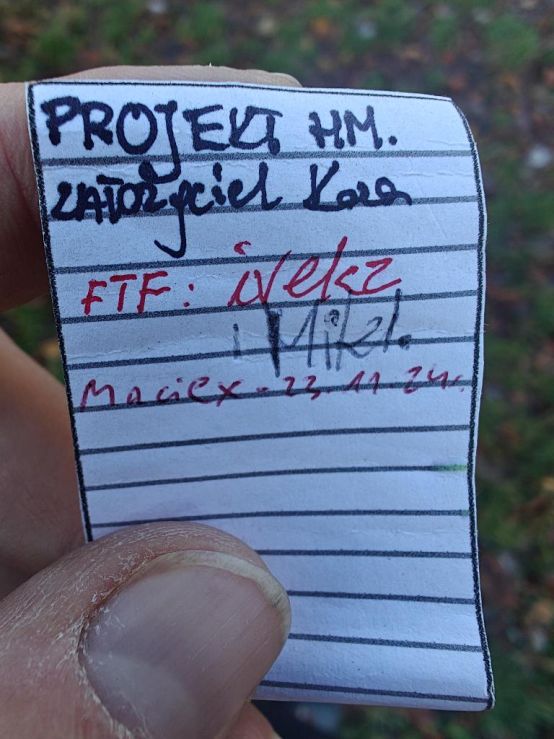 PROJEKT HM.
ZAŁOŻyciel Kora
FTF: ivekz
i Mikl.
Maciex. 23.11.24r.